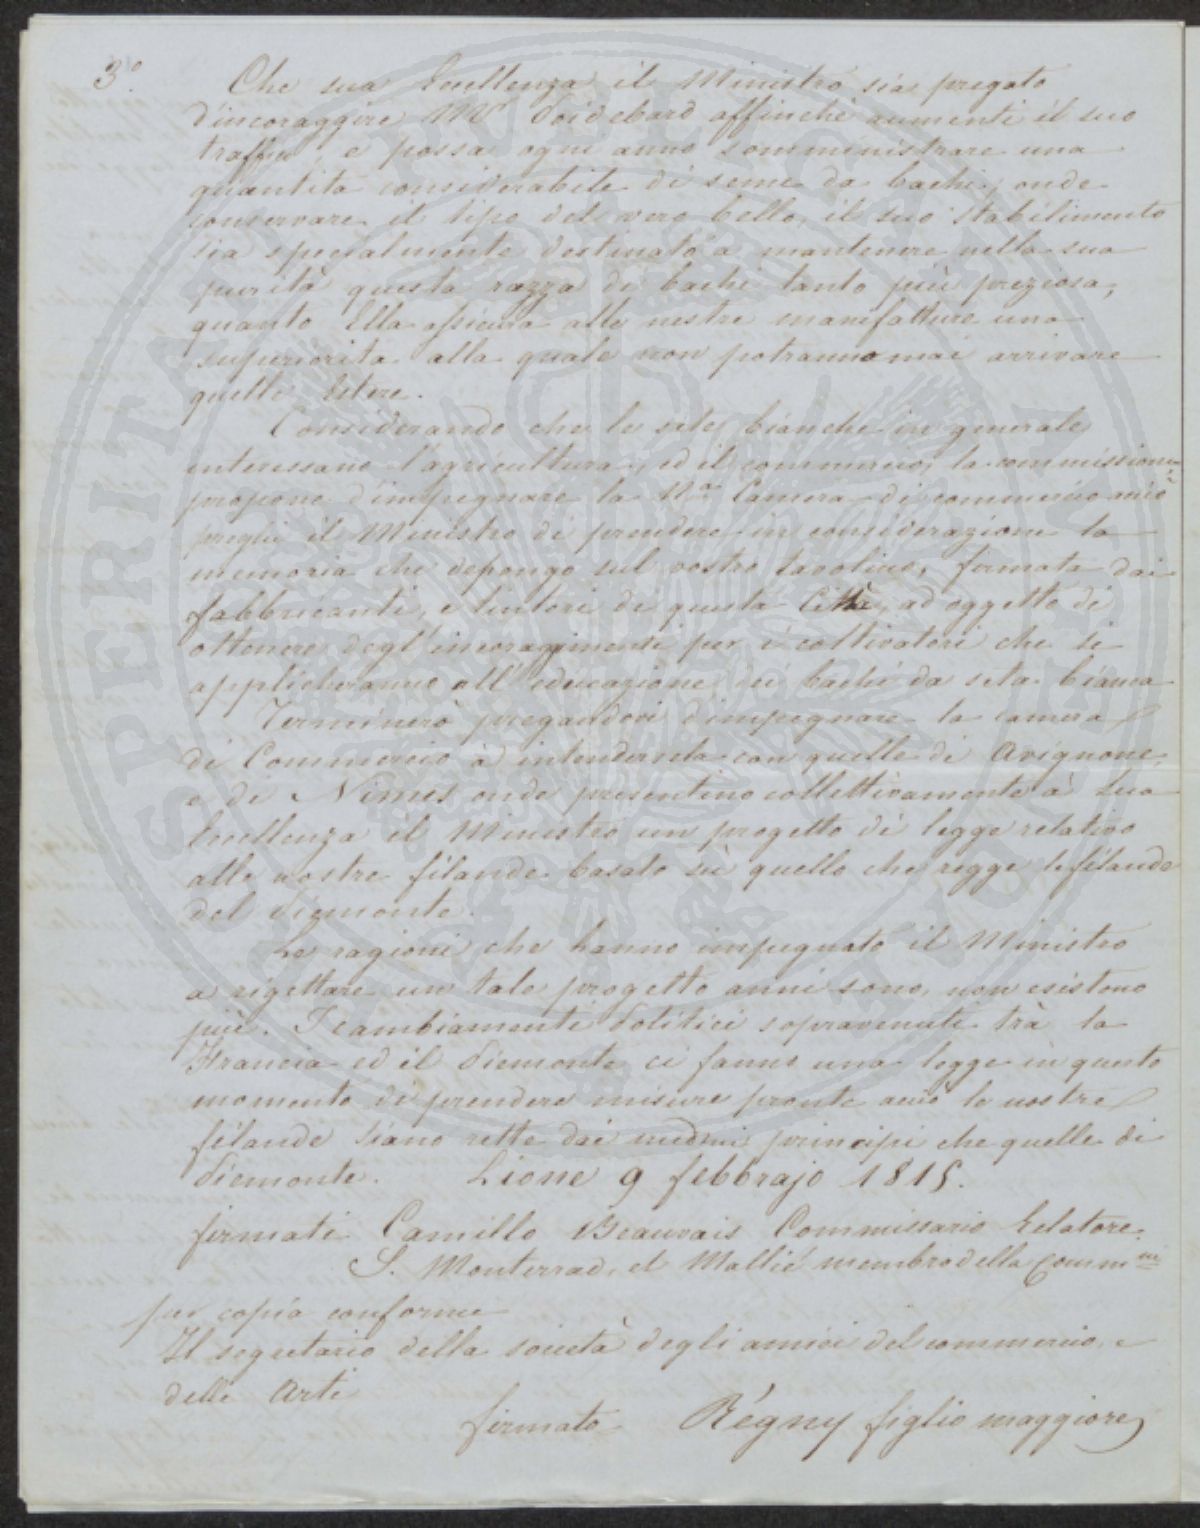 3º. Che sua Eccellenza il Ministro sia pregato
d'incoraggire Mr Poidebard affinché aumenti il suo
traffico, e possa ogni anno somministrare una
quantità considerabile di seme da bachi; onde
conservare il tipo del vero bello, il suo stabilimento
sia specialmente destinato a mantenere nella sua
purità questa razza di bachi tanto più preziosa,
quanto Ella assicura alle nostre manifatture una
superiorità alla quale non potranno mai arrivare
quelle Estere.
Considerando che le sete bianche in generale
interessano l'agricultura, ed il commercio, la commissione
propone d'impegnare la Nra Camera di commercio acciò
preghi il Ministro di prendere in considerazione la
memoria che depongo sul vostro tavolino, firmata dai
fabbricanti, e tintori di questa Città, ad oggetto di
ottenere degl'incoragimenti per i coltivatori che si
applicheranno all'educazione dei bachi da seta bianca
Terminerò pregandovi d'impegnare la camera
di Commercio à intendersela con quelle di Avignone,
e di Nimes onde presentino collettivamente à Sua
Eccellenza il Ministro un progetto di legge relativo
alle nostre filande basato sù quello che regge le filande
del Piemonte.
Le ragioni che hanno impegnato il Ministro
a rigettare un tale progetto anni sono, non esistono
più. I cambiamenti Politici sopravenuti trà la
Francia ed il Piemonte ci fanno una legge in questo
momento di prendere misure pronte acciò le nostre
filande siano rette dai medmi principi che quelle di
Piemonte. Lione 9 febbrajo 1815.
firmati Camillo Beauvais Commissario Relatore.
S. Monterrad, et Mallié membro della Commne
per copia conforme
Il segretario della società degli amici del commercio, e
delle Arti
firmato Régny figlio maggiore
SPERITAT PVBLICA VNIV